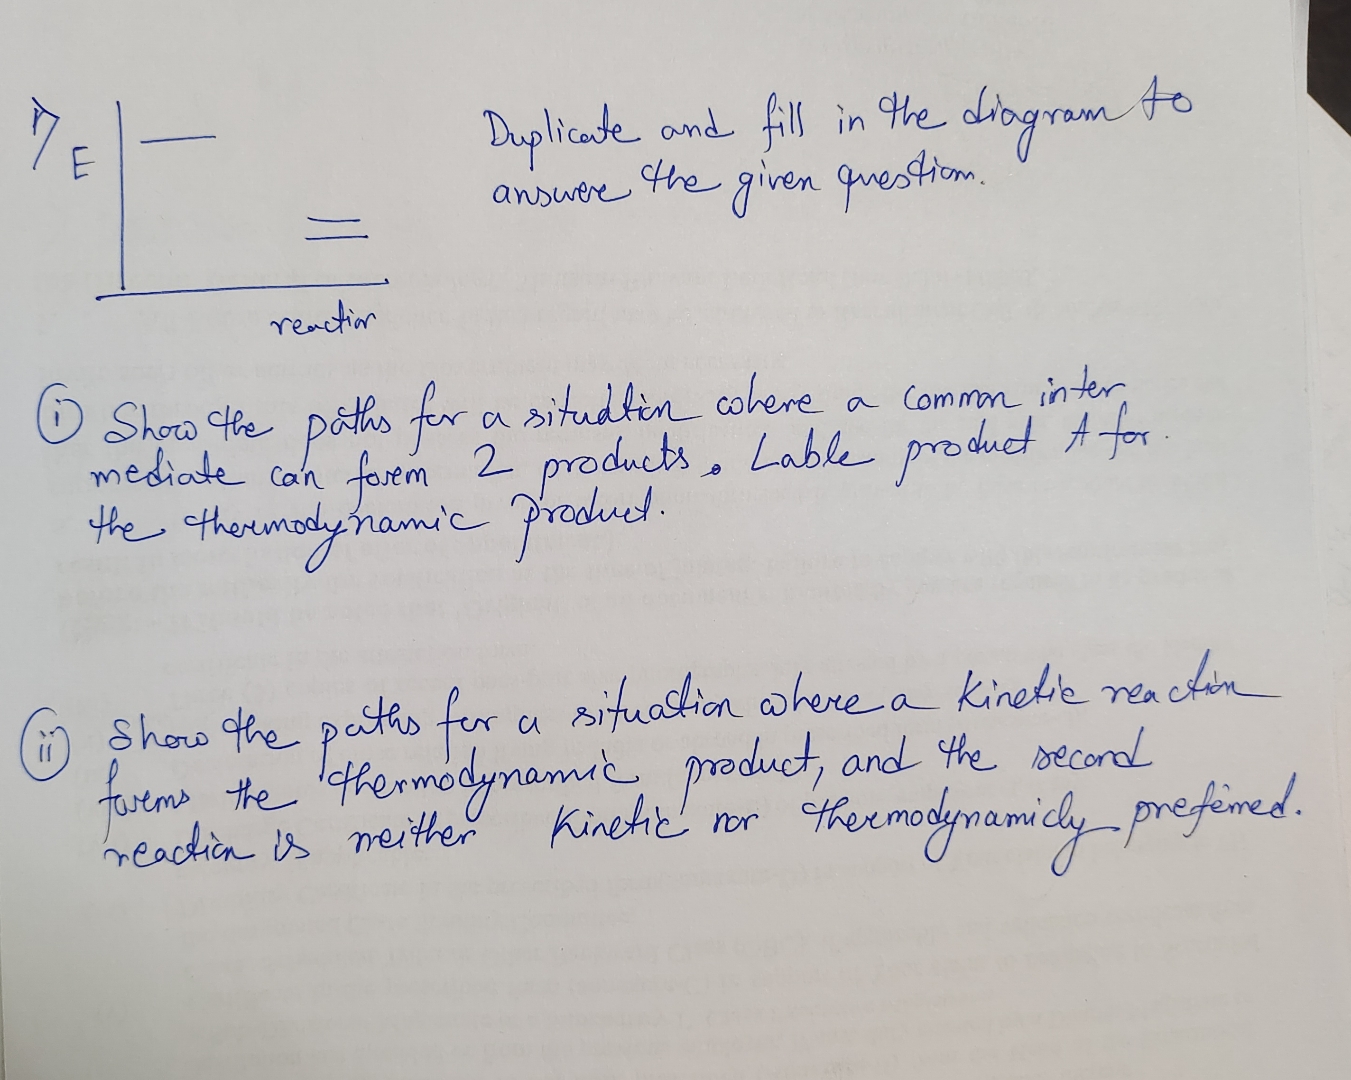 7
E
reaction
Duplicate and fill in the diagram to
answere the given question.
i Show the paths for a situation where a common inter
mediate can form 2 products. Lable product A for
the thermodynamic product.
ii Show the paths for a situation where a kinetic reaction
forms the thermodynamic product, and the second
reaction is neither kinetic nor thermodynamicly preferred.